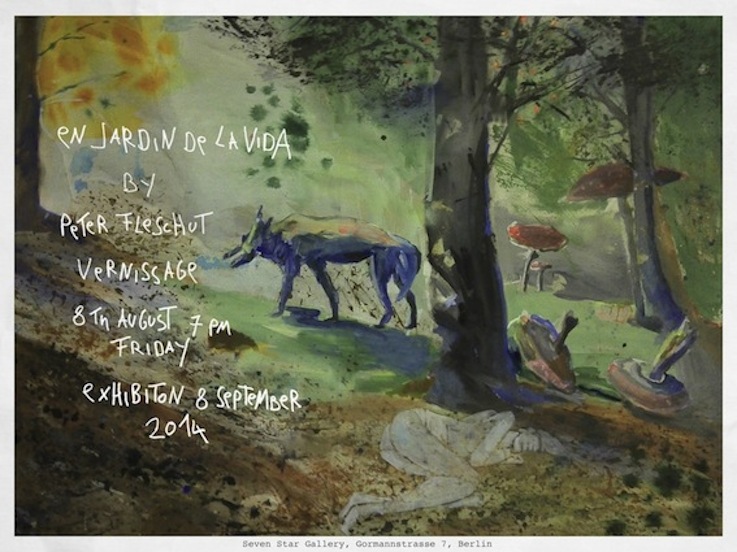 eN JARDiN De LA ViDA
BY
PeTeR FLeScHUT
VeRNiSSAGe
8TH AUGUST 7 PM
FRiDAY
eXHiBiTON 8 SePTeMBeR
2014
Seven Star Gallery, Gormannstrasse 7, Berlin